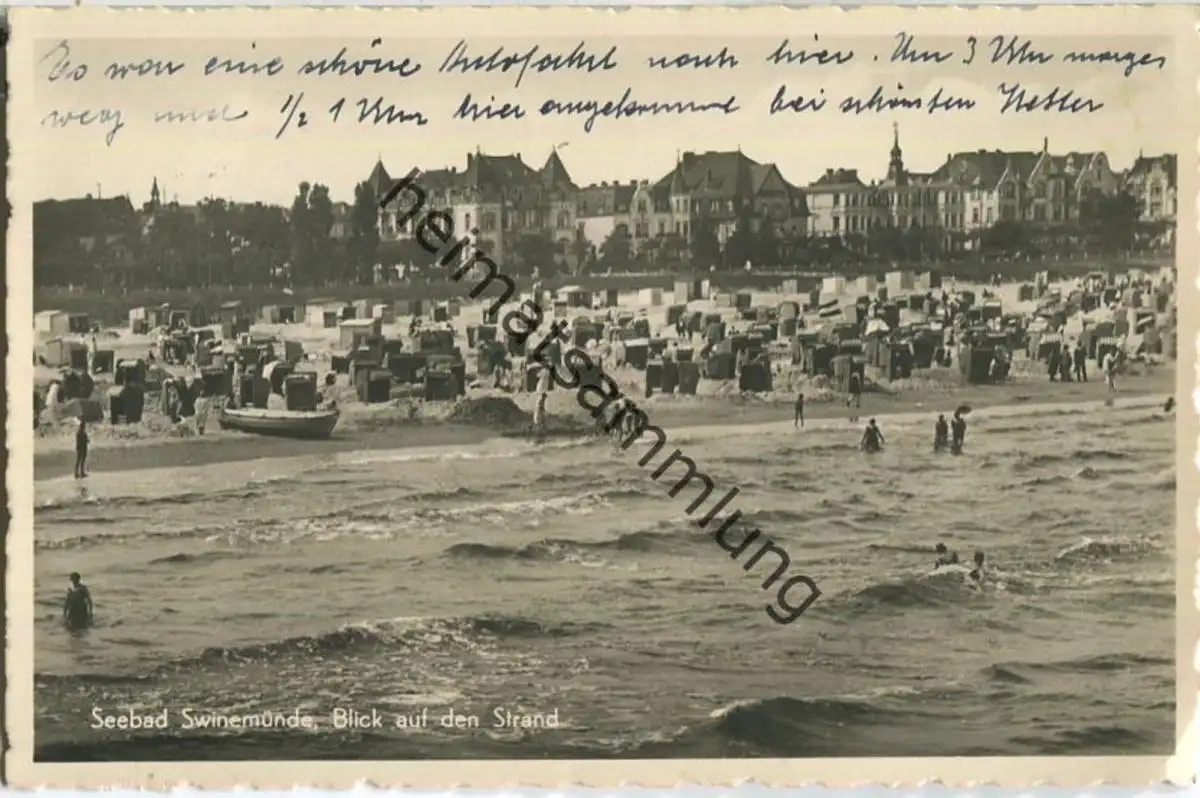 Es war eine schöne Autofahrt nach hier. Um 3 Uhr morgens
weg und 1/2 1 Uhr hier angekommen bei schönsten Wetter
heimatsammlung.de
Seebad Swinemünde, Blick auf den Strand